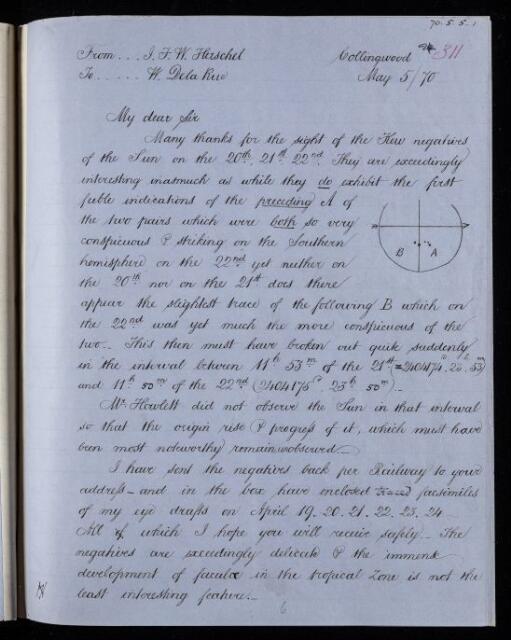 70. 5. 5. 1
311
From... J. F. W. Herschel Collingwood
To..... W. Dela Rue May 5/70
My dear Sir
Many thanks for the sight of the Kew negatives
of the Sun on the 20th, 21st 22nd. They are exceedingly
interesting inasmuch as while they do exhibit the first
feeble indications of the preceding A of
the two pairs which were both so very
conspicuous & striking on the Southern
hemisphere on the 22nd yet neither on
the 20th nor on the 21st does there
B A
appear the slightest trace of the following B which on
the 22nd was yet much the more conspicuous of the
two.. This then must have broken out quite suddenly
in the interval between 11h 53m of the 21st =
and 11h 50m of the 22nd (2404175d. 23h 50m)..
Mr. Howlett did not observe the Sun in that interval
so that the origin rise & progress of it, which must have
been most noteworthy remain unobserved..
I have sent the negatives back per Railway to your
address - and in the box have enclosed traced facsimiles
of my eye drafts on April 19. 20. 21. 22. 23. 24
All of which I hope you will receive safely.. The
negatives are exceedingly delicate & the immense
development of faculæ in the tropical Zone is not the
least interesting feature..
6